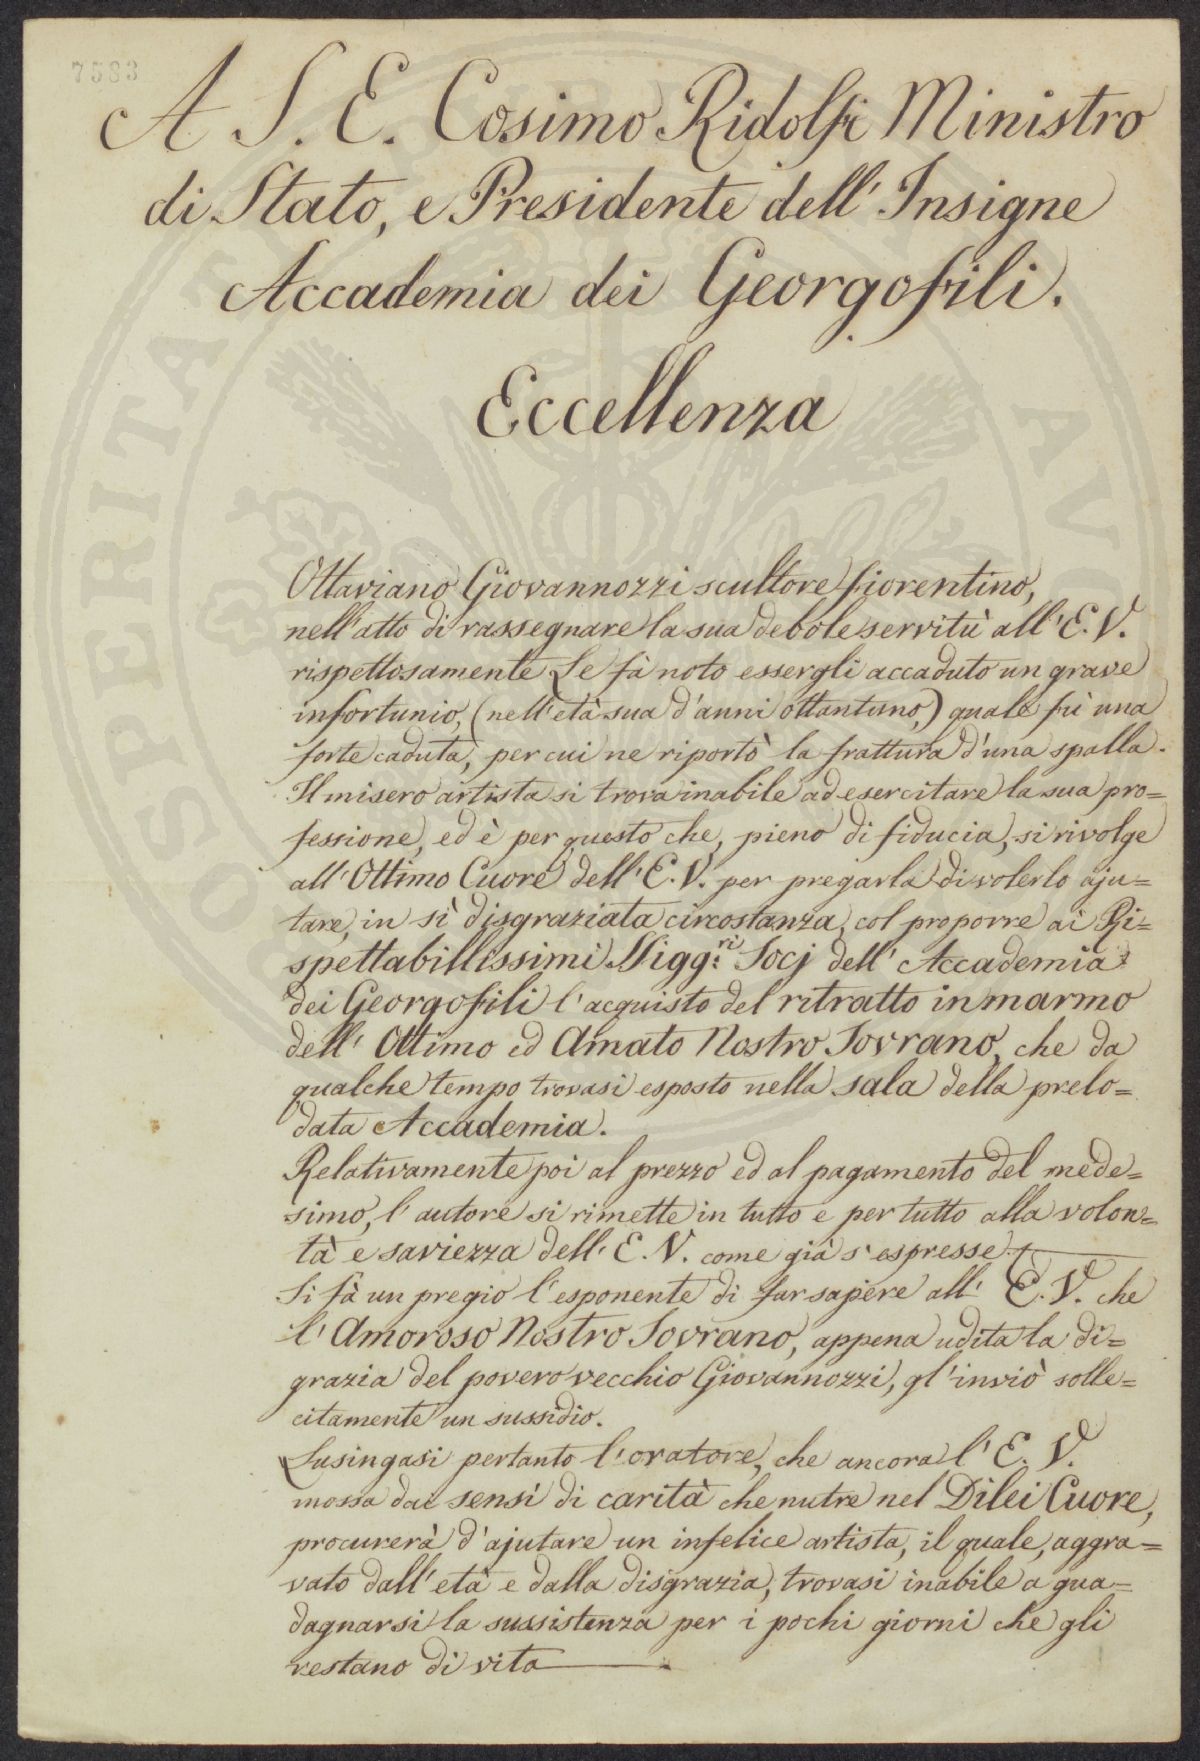 7583
A S. E. Cosimo Ridolfi Ministro
di Stato, e Presidente dell' Insigne
Accademia dei Georgofili.
Eccellenza
Ottaviano Giovannozzi scultore fiorentino,
nell'atto di rassegnare la sua debole servitù all' E. V.
rispettosamente Le fà noto essergli accaduto un grave
infortunio, (nell'età sua d'anni ottantuno,) quale fù una
forte caduta, per cui ne riportò la frattura d'una spalla.
Il misero artista si trova inabile ad esercitare la sua pro=
fessione, ed è per questo che, pieno di fiducia, si rivolge
all' Ottimo Cuore dell' E. V. per pregarla di volerlo aju=
tare, in sì disgraziata circostanza, col proporre ai Ri=
spettabilissimi Sigg:ri Socj dell' Accademia
dei Georgofili l'acquisto del ritratto in marmo
dell' Ottimo ed Amato Nostro Sovrano, che da
qualche tempo trovasi esposto nella sala della prelo=
data Accademia.
Relativamente poi al prezzo ed al pagamento del mede=
simo, l'autore si rimette in tutto e per tutto alla volon=
tà e saviezza dell' E. V. come già s'espresse.
Si fà un pregio l'esponente di far sapere all' E. V. che
l' Amoroso Nostro Sovrano, appena udita la di=
grazia del povero vecchio Giovannozzi, gl'inviò solle=
citamente un sussidio.
Lusingasi pertanto l'oratore, che ancora l' E. V.
mossa dai sensi di carità che nutre nel Di lei Cuore,
procurerà d'ajutare un infelice artista, il quale, aggra=
vato dall'età e dalla disgrazia, trovasi inabile a gua=
dagnarsi la sussistenza per i pochi giorni che gli
restano di vita